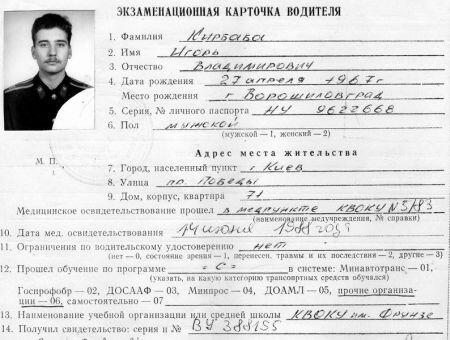 ЭКЗАМЕНАЦИОННАЯ КАРТОЧКА ВОДИТЕЛЯ
1. Фамилия Кирбаба
2. Имя Игорь
3. Отчество Владимирович
4. Дата рождения 27 апреля 1967г
Место рождения г Ворошиловград
5. Серия, № личного паспорта НУ 9622668
6. Пол мужской
(мужской — 1, женский — 2)
Адрес места жительства
М. П.
7. Город, населенный пункт г Киев
8. Улица пр. Победы
9. Дом, корпус, квартира 71
Медицинское освидетельствование прошел в медпункте КВОКУ N 5/83
(наименование медучреждения, № справки)
10. Дата мед. освидетельствования 14 июня 1988 года
11. Ограничения по водительскому удостоверению нет
(нет — 0, состояние зрения — 1, перенесен. травмы и их последствия — 2, другие — 3)
12. Прошел обучение по программе "С" в системе: Минавтотранс — 01,
(указать, на какую категорию транспортных средств обучался)
Госпрофобр — 02, ДОСААФ — 03, Минпрос — 04, ДОАМЛ — 05, прочие органи-
зации — 06, самостоятельно — 07
13. Наименование учебной организации или средней школы КВОКУ им. Фрунзе
14. Получил свидетельство: серия и № ВУ 388155